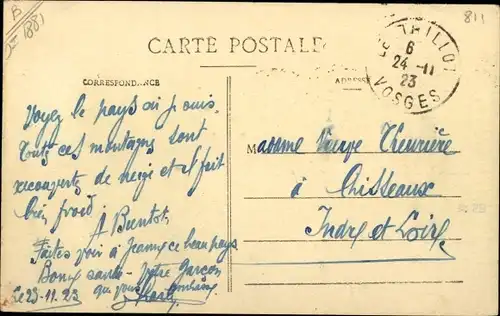 B
1881
811
CARTE POSTALE
CORRESPONDANCE
ADRESSE
THILLOT
6
24-11
23
VOSGES
Voyez le pays où je suis.
Toutes ces montagnes sont
recouverts de neige et il fait
bien froid.
A Bientôt
Faites voir à Jeanne ce beau pays
Bonne santé - Votre Garçon
qui vous embrasse
Le 23-11.23
Madame Veuve Theurière
à Chisseaux
Indre et Loire